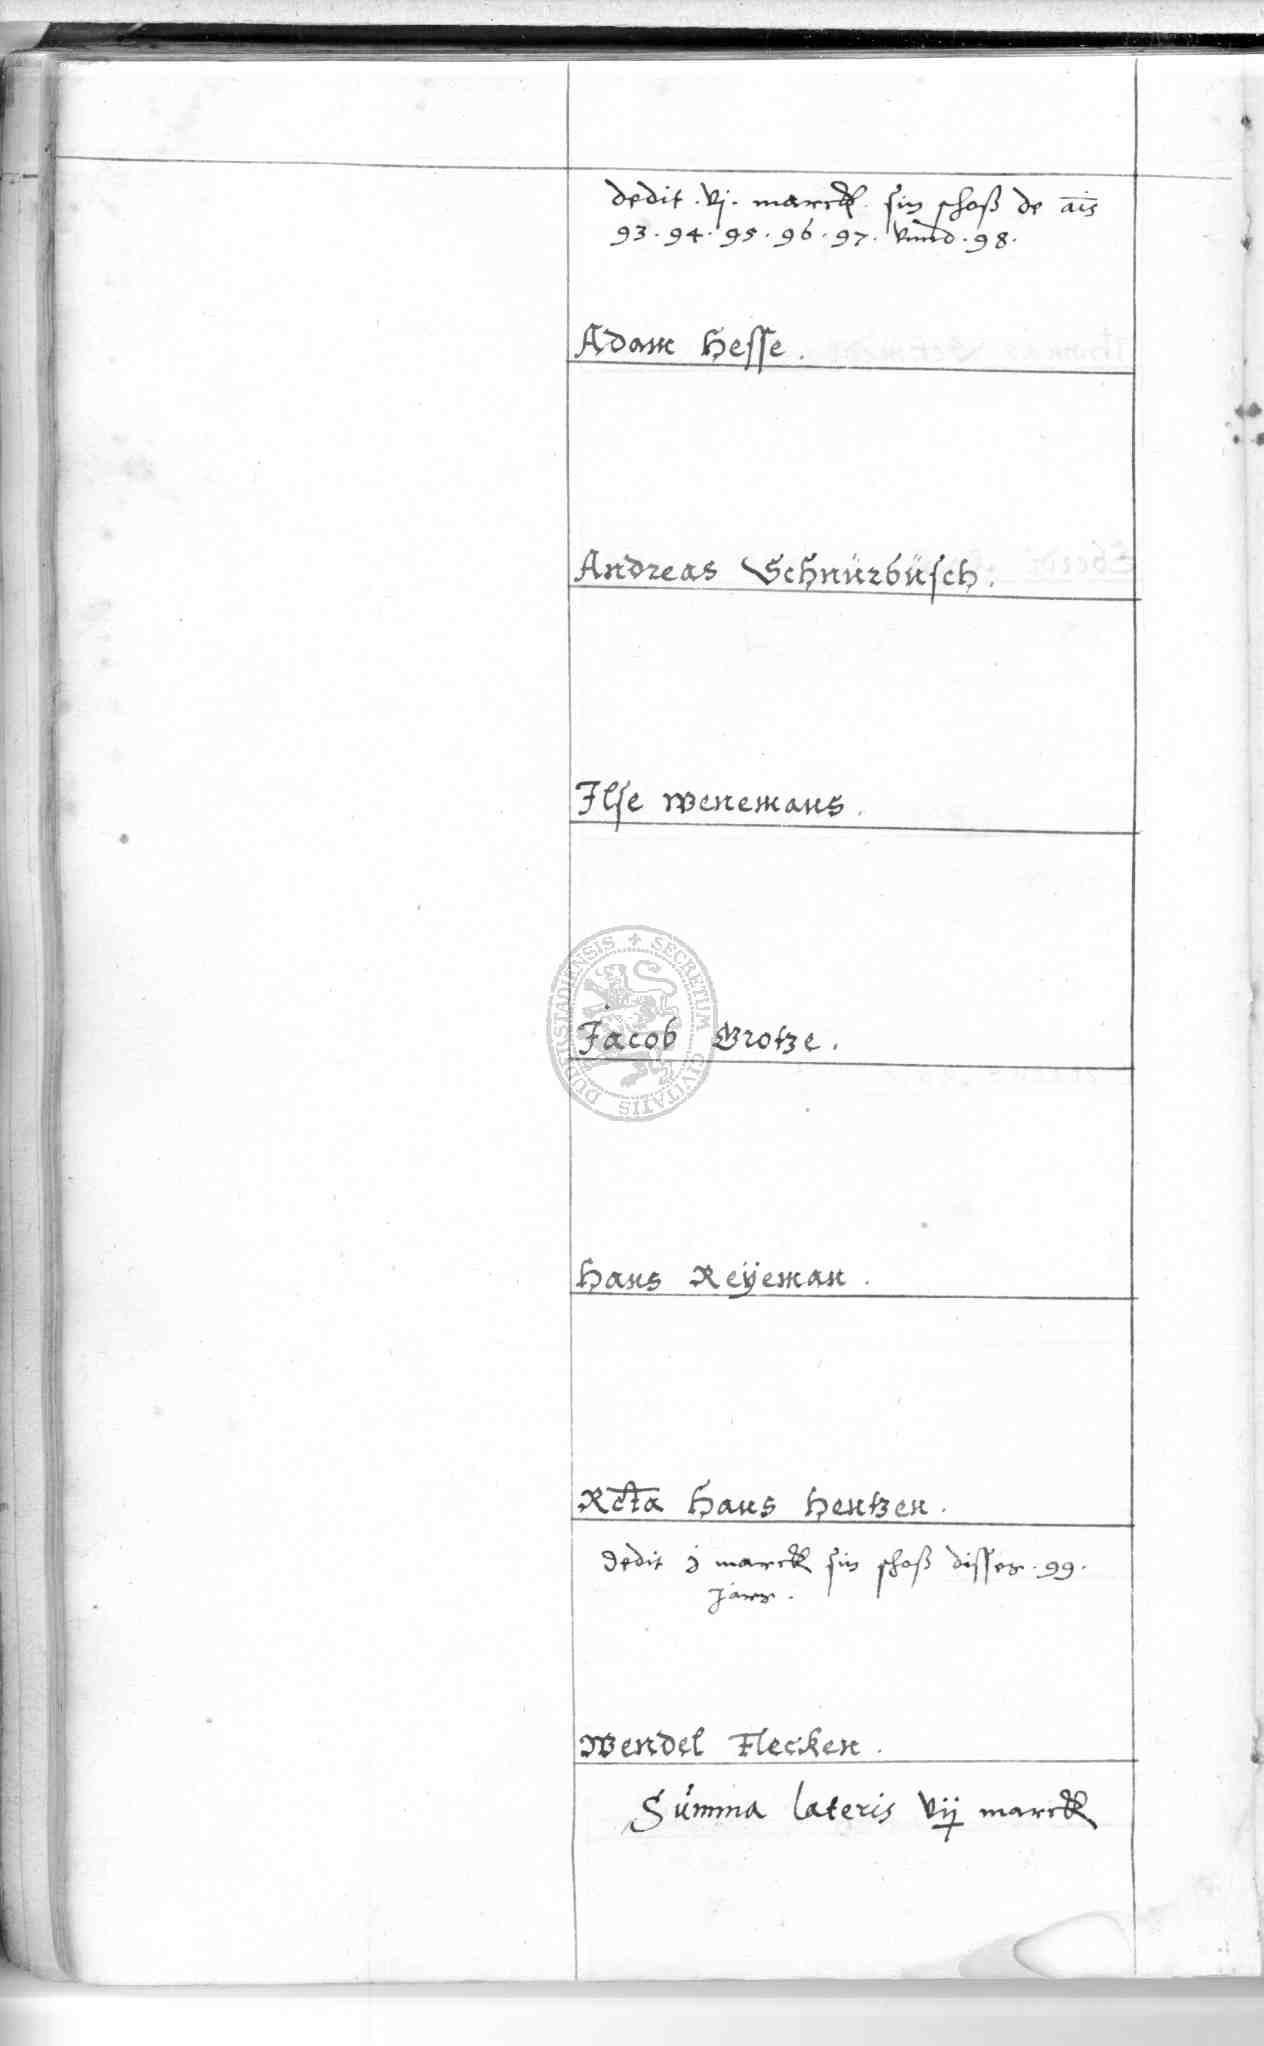 dedit . vj . marck sin schoß de ais
93 . 94 . 95 . 96 . 97 . vnnd . 98 .
Adam Hesse .
Andreas Schnürbüsch .
Ilse Wenemans .
SECRETUM CIVITATIS DUDERSTADIENSIS
Jacob Brotze .
Hans Reÿeman .
Rcta Hans Hentzen .
dedit j marck sin schoß disses . 99 .
jares .
Wendel Flecken .
Summa lateris vij marck